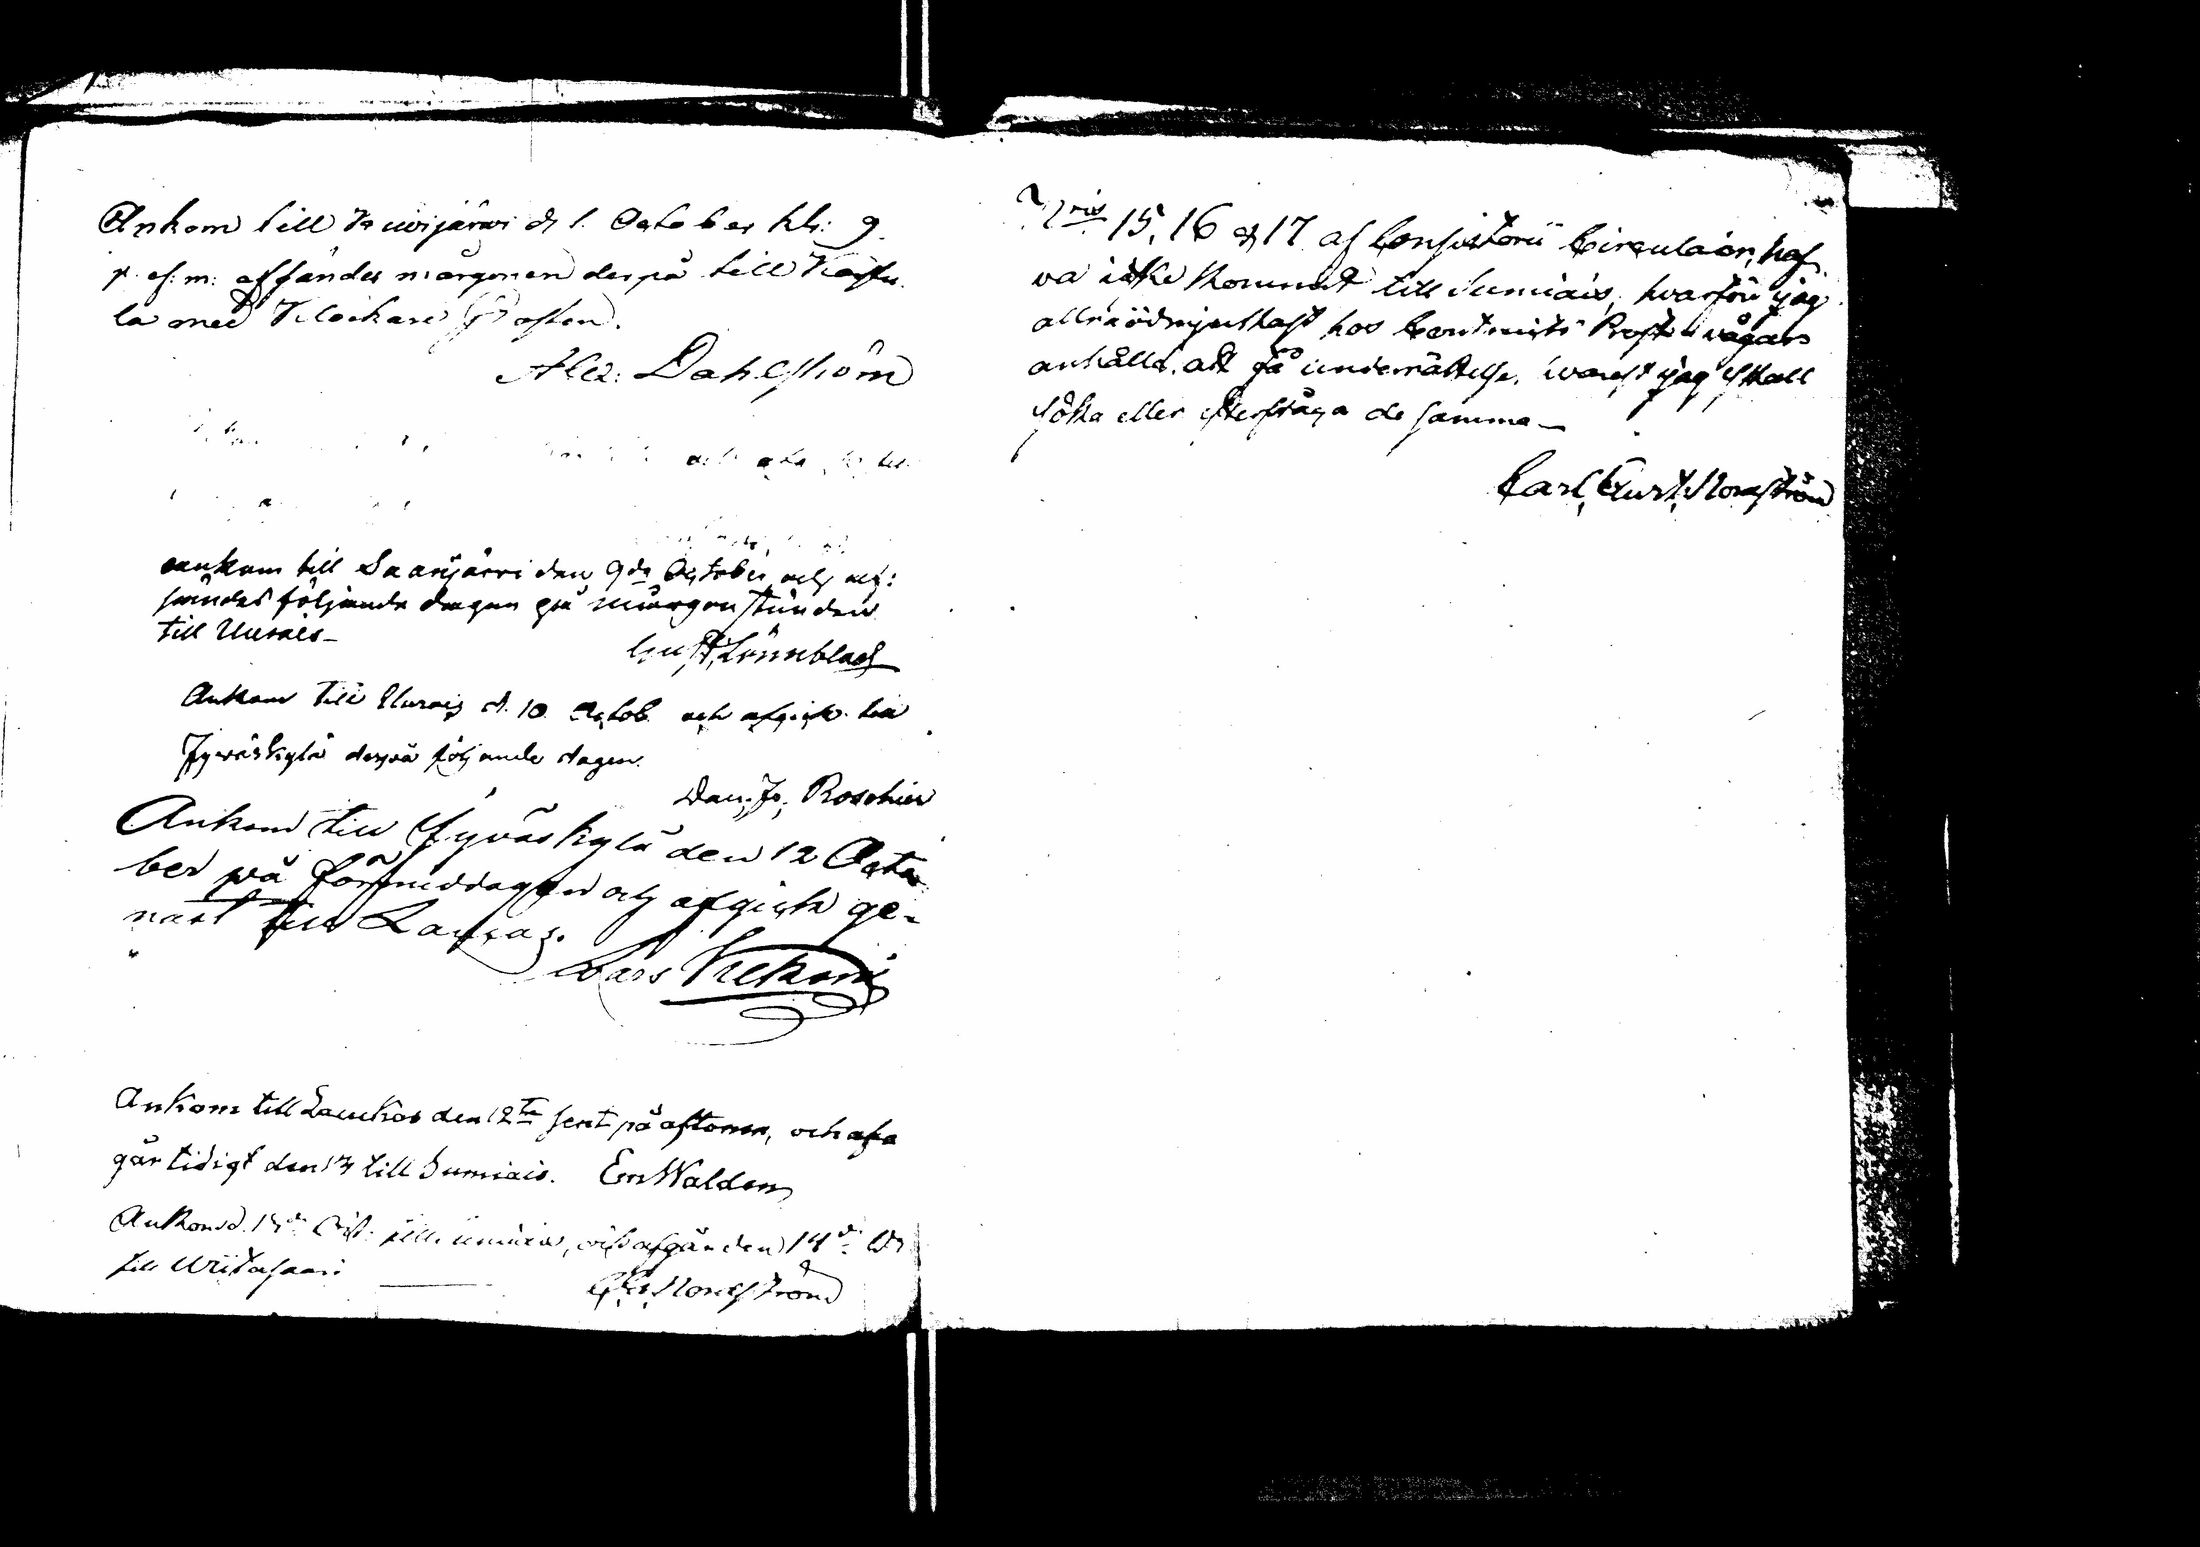 Ankom till Kiwijärwi d. 1. October kl: 9.
p. ef: m: affändes mårgonen derpå till Karstu
la med Klockare Posten.
Alex: Dahlström
och
ankom till Saarijärvi den 9de October och af:
sändes följande dagen på mårgon stunden
till Uurais_
Gust. Lönnblad
Ankom till Uurais d. 10 Octob. och afgick till
Jywäskylä derpå följande dagen.
Dan: Joh: Roschier
Ankom till Jyväskylä den 12 Octo
ber på förmiddagen och afgick ge-
nast till Laukas.
Lars
Ankom till Laukas den 12te sent på aftonen, och af
går tidigt den 13 till Sumiais. Em Walden
Ankom d. 13de Oct: till Sumiais, och afgår den 14de
till Wiitasaari
C. G. Nordström
Nris 15, 16 & 17 af Consistorii Circulair, haf
va icke kommit till Sumiais, hvarföre jag
allraödmjukast hos Contracts Prosten vågar
anhålla, att få underrättelse, warest jag skall
söka eller efterfråga de samma_
Carl Gust. Nordström